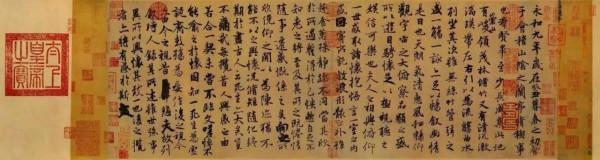 永和九年歲在癸丑暮春之初會
于會稽山陰之蘭亭脩禊事
也羣賢畢至少長咸集此地
有崇山峻領茂林脩竹又有清流激
湍暎帶左右引以為流觴曲水
列坐其次雖無絲竹管弦之
盛一觴一詠亦足以暢敘幽情
是日也天朗氣清惠風和暢仰
觀宇宙之大俯察品類之盛
所以遊目騁懷足以極視聽之
娛信可樂也夫人之相與俯仰
一世或取諸懷抱悟言一室之內
或因寄所託放浪形骸之外雖
趣舍萬殊靜躁不同當其欣
於所遇暫得於己快然自足不
知老之將至及其所之既惓情
隨事遷感慨係之矣向之所
欣俛仰之閒以為陳迹猶不
能不以之興懷況脩短隨化終
期於盡古人云死生亦大矣豈
不痛哉每攬昔人興感之由
若合一契未嘗不臨文嗟悼不
能喻之於懷固知一死生為虛
誕齊彭殤為妄作後之視今
亦由今之視昔悲夫故列
敘時人錄其所述雖世殊事
異所以興懷其致一也後之攬
者亦將有感於斯文
太上皇帝之寶